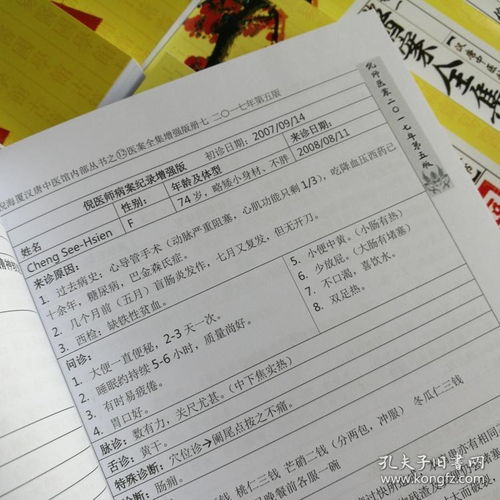 倪海厦汉唐中医馆内部丛书之⑫医案全集增强版册七 二〇一七年第五版
倪医师病案纪录增强版
初诊日期：2007/09/14
来诊日期：2008/08/11
姓名
性别：
年龄及体型
Cheng See-Hsien
F
74 岁，略矮小身材、不胖
来诊原因：
1. 过去病史：心导管手术（动脉严重阻塞，心肌功能只剩 1/3），吃降血压西药已
十余年，糖尿病，巴金森氏症。
2. 几个月前（五月）盲肠炎发作，七月又复发，但无开刀。
3. 西检：缺铁性贫血。
问诊：
1. 大便一直便秘，2-3 天一次。
2. 睡眠约持续 5-6 小时，质量尚好。
3. 有时易疲倦。
4. 胃口好。
5. 小便中黄。（小肠有热）
6. 少放屁。（大肠有堵塞）
7. 不口渴，喜饮水。
8. 双足热。
脉诊：数有力，关尺尤甚。（中下焦实热）
舌诊：黄干。
特殊诊断：穴位诊→阑尾点按之不痛。
诊断：肠痈。
桃仁三钱 芒硝二钱（分两包，冲服） 冬瓜仁三钱
晚餐前各服一碗
二〇一七年第五版
汉唐中医
案全集
孔夫子旧书网
kongfz.com